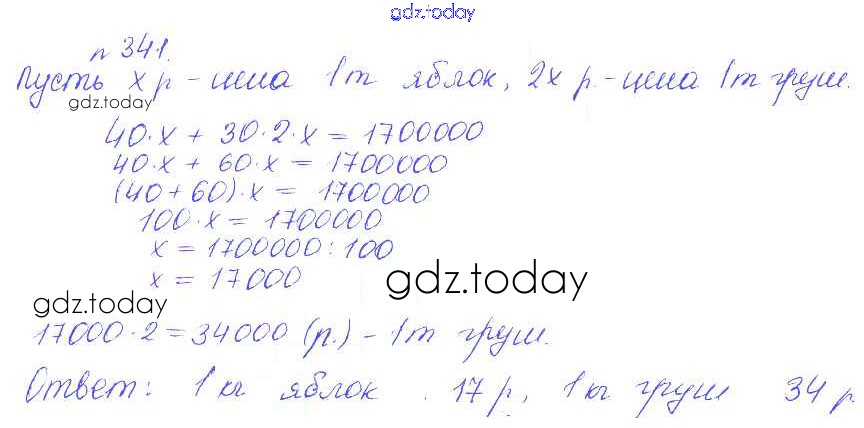 gdz.today
п 341.
Пусть х р - цена 1т яблок, 2х р. - цена 1т груш.
gdz.today
40·х + 30·2·х = 1700000
40·х + 60·х = 1700000
(40+60)·х = 1700000
100·х = 1700000
х = 1700000:100
х = 17000
gdz.today
gdz.today
17000·2 = 34000 (р.) - 1т груш.
Ответ: 1 кг яблок . 17 р, 1 кг груш 34 р